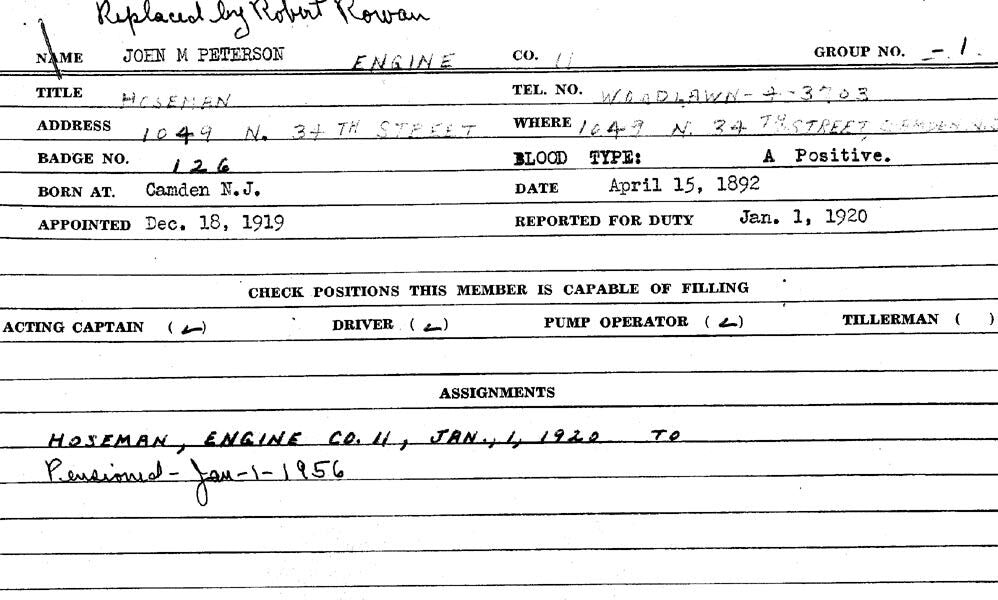 Replaced by Robert Rowan
NAME JOHN M PETERSON ENGINE CO. 11 GROUP NO. - 1.
TITLE HOSEMAN TEL. NO. WOODLAWN-4-3703
ADDRESS 1049 N. 34 TH STREET WHERE 1049 N. 34 TH STREET, CAMDEN N.J.
BADGE NO. 126 BLOOD TYPE: A Positive.
BORN AT. Camden N.J. DATE April 15, 1892
APPOINTED Dec. 18, 1919 REPORTED FOR DUTY Jan. 1, 1920
CHECK POSITIONS THIS MEMBER IS CAPABLE OF FILLING
ACTING CAPTAIN (✓) DRIVER (✓) PUMP OPERATOR (✓) TILLERMAN ( )
ASSIGNMENTS
HOSEMAN, ENGINE CO. 11, JAN., 1, 1920 TO
Pensioned - Jan-1-1956